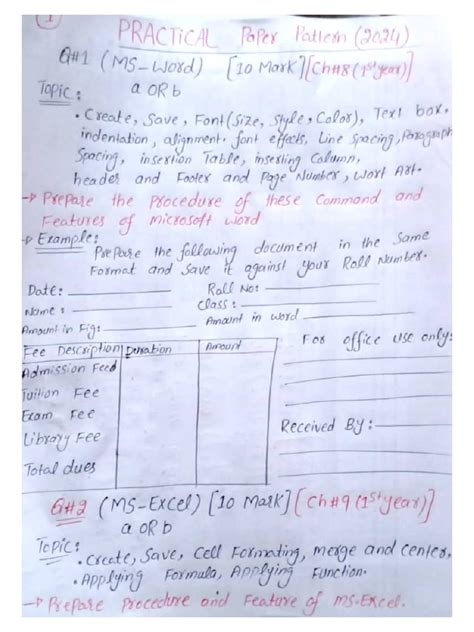 1
PRACTICAL Paper Pattern (2024)
Q#1 (MS-Word) [10 Mark] [Ch#8 (1st year)]
a OR b
Topic:
• Create, Save, Font (Size, Style, Color), Text box,
indentation, alignment, font effects, Line Spacing, Paragraph
Spacing, insertion Table, inserting Column,
header and Footer and Page Number, Wort Art.
→ Prepare the Procedure of these Command and
Features of Microsoft Word
→ Example:
Prepare the following document in the Same
Format and Save it against your Roll Number.
Date: Roll No:
Name: Class:
Amount in Fig: Amount in word
Fee Description Duration Amount For office use only:
Admission Feed
Tuition Fee
Exam Fee
Received By:
Library Fee
Total dues
Q#2 (MS-Excel) [10 Mark] [Ch#9 (1st year)]
a OR b
Topic:
• Create, Save, Cell Formating, merge and center,
• Applying Formula, Applying Function.
→ Prepare Procedure and Feature of MS-Excel.